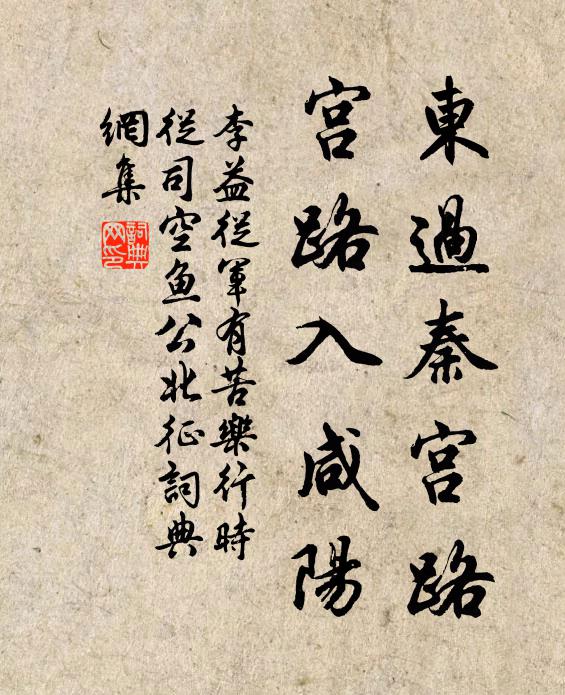 東過秦宮路
宮路入咸陽
李益從軍有苦樂行時
從司空魚公北征詞典
網集
詞典
网印